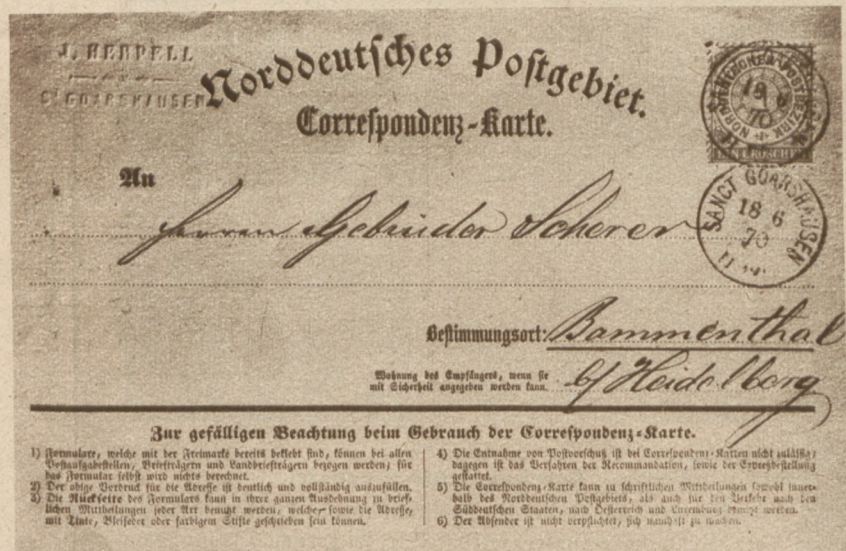 J. HERPELL
ST GOARSHAUSEN
Norddeutsches Postgebiet.
Correspondenz-Karte.
18 6
70
SANCT GOARSHAUSEN
18 6
70
An
Herrn Gebrüder Scherer
Bestimmungsort: Bammenthal
Wohnung des Empfängers, wenn sie
mit Sicherheit angegeben werden kann.
b/ Heidelberg
Zur gefälligen Beachtung beim Gebrauch der Correspondenz-Karte.
1) Formulare, welche mit der Freimarke bereits beklebt sind, können bei allen
Postaufgabestellen, Briefträgern und Landbriefträgern bezogen werden; für
das Formular selbst wird nichts berechnet.
2) Der obige Vordruck für die Adresse ist deutlich und vollständig auszufüllen.
3) Die Rückseite des Formulars kann in ihrer ganzen Ausdehnung zu brief-
lichen Mittheilungen jeder Art benutzt werden, welche, sowie die Adresse,
mit Tinte, Bleifeder oder farbigem Stifte geschrieben sein können.
4) Die Entnahme von Postvorschuß ist bei Correspondenz-Karten nicht zulässig;
dagegen ist das Verfahren der Recommandation, sowie der Expreßbestellung
gestattet.
5) Die Correspondenz-Karte kann zu schriftlichen Mittheilungen sowohl inner-
halb des Norddeutschen Postgebiets, als auch für den Verkehr nach den
Süddeutschen Staaten, nach Oesterreich und Luxemburg benutzt werden.
6) Der Absender ist nicht verpflichtet, sich namhaft zu machen.